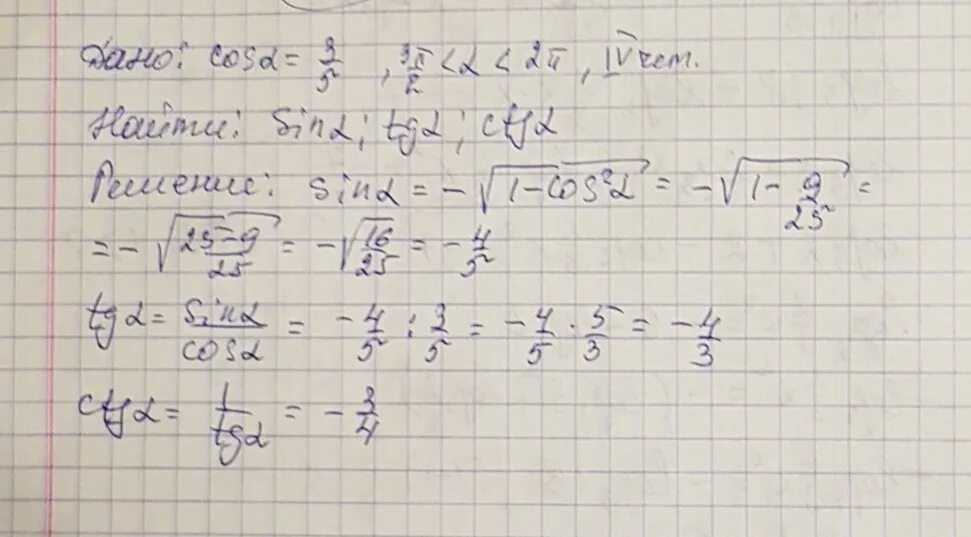 Дано: cosα = 3/5 , 3π/2 < α < 2π , IV чет.
Найти: sinα ; tgα ; ctgα
Решение: sinα = -√(1-cos²α) = -√(1- 9/25) =
= -√((25-9)/25) = -√(16/25) = - 4/5
tgα = sinα/cosα = - 4/5 : 3/5 = - 4/5 · 5/3 = - 4/3
ctgα = 1/tgα = - 3/4